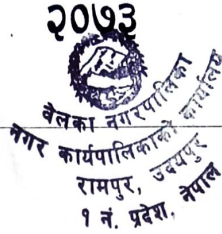 २०७३
बेलका नगरपालिका
नगर कार्यपालिकाको कार्यालय
रामपुर, उदयपुर
१ नं. प्रदेश, नेपाल